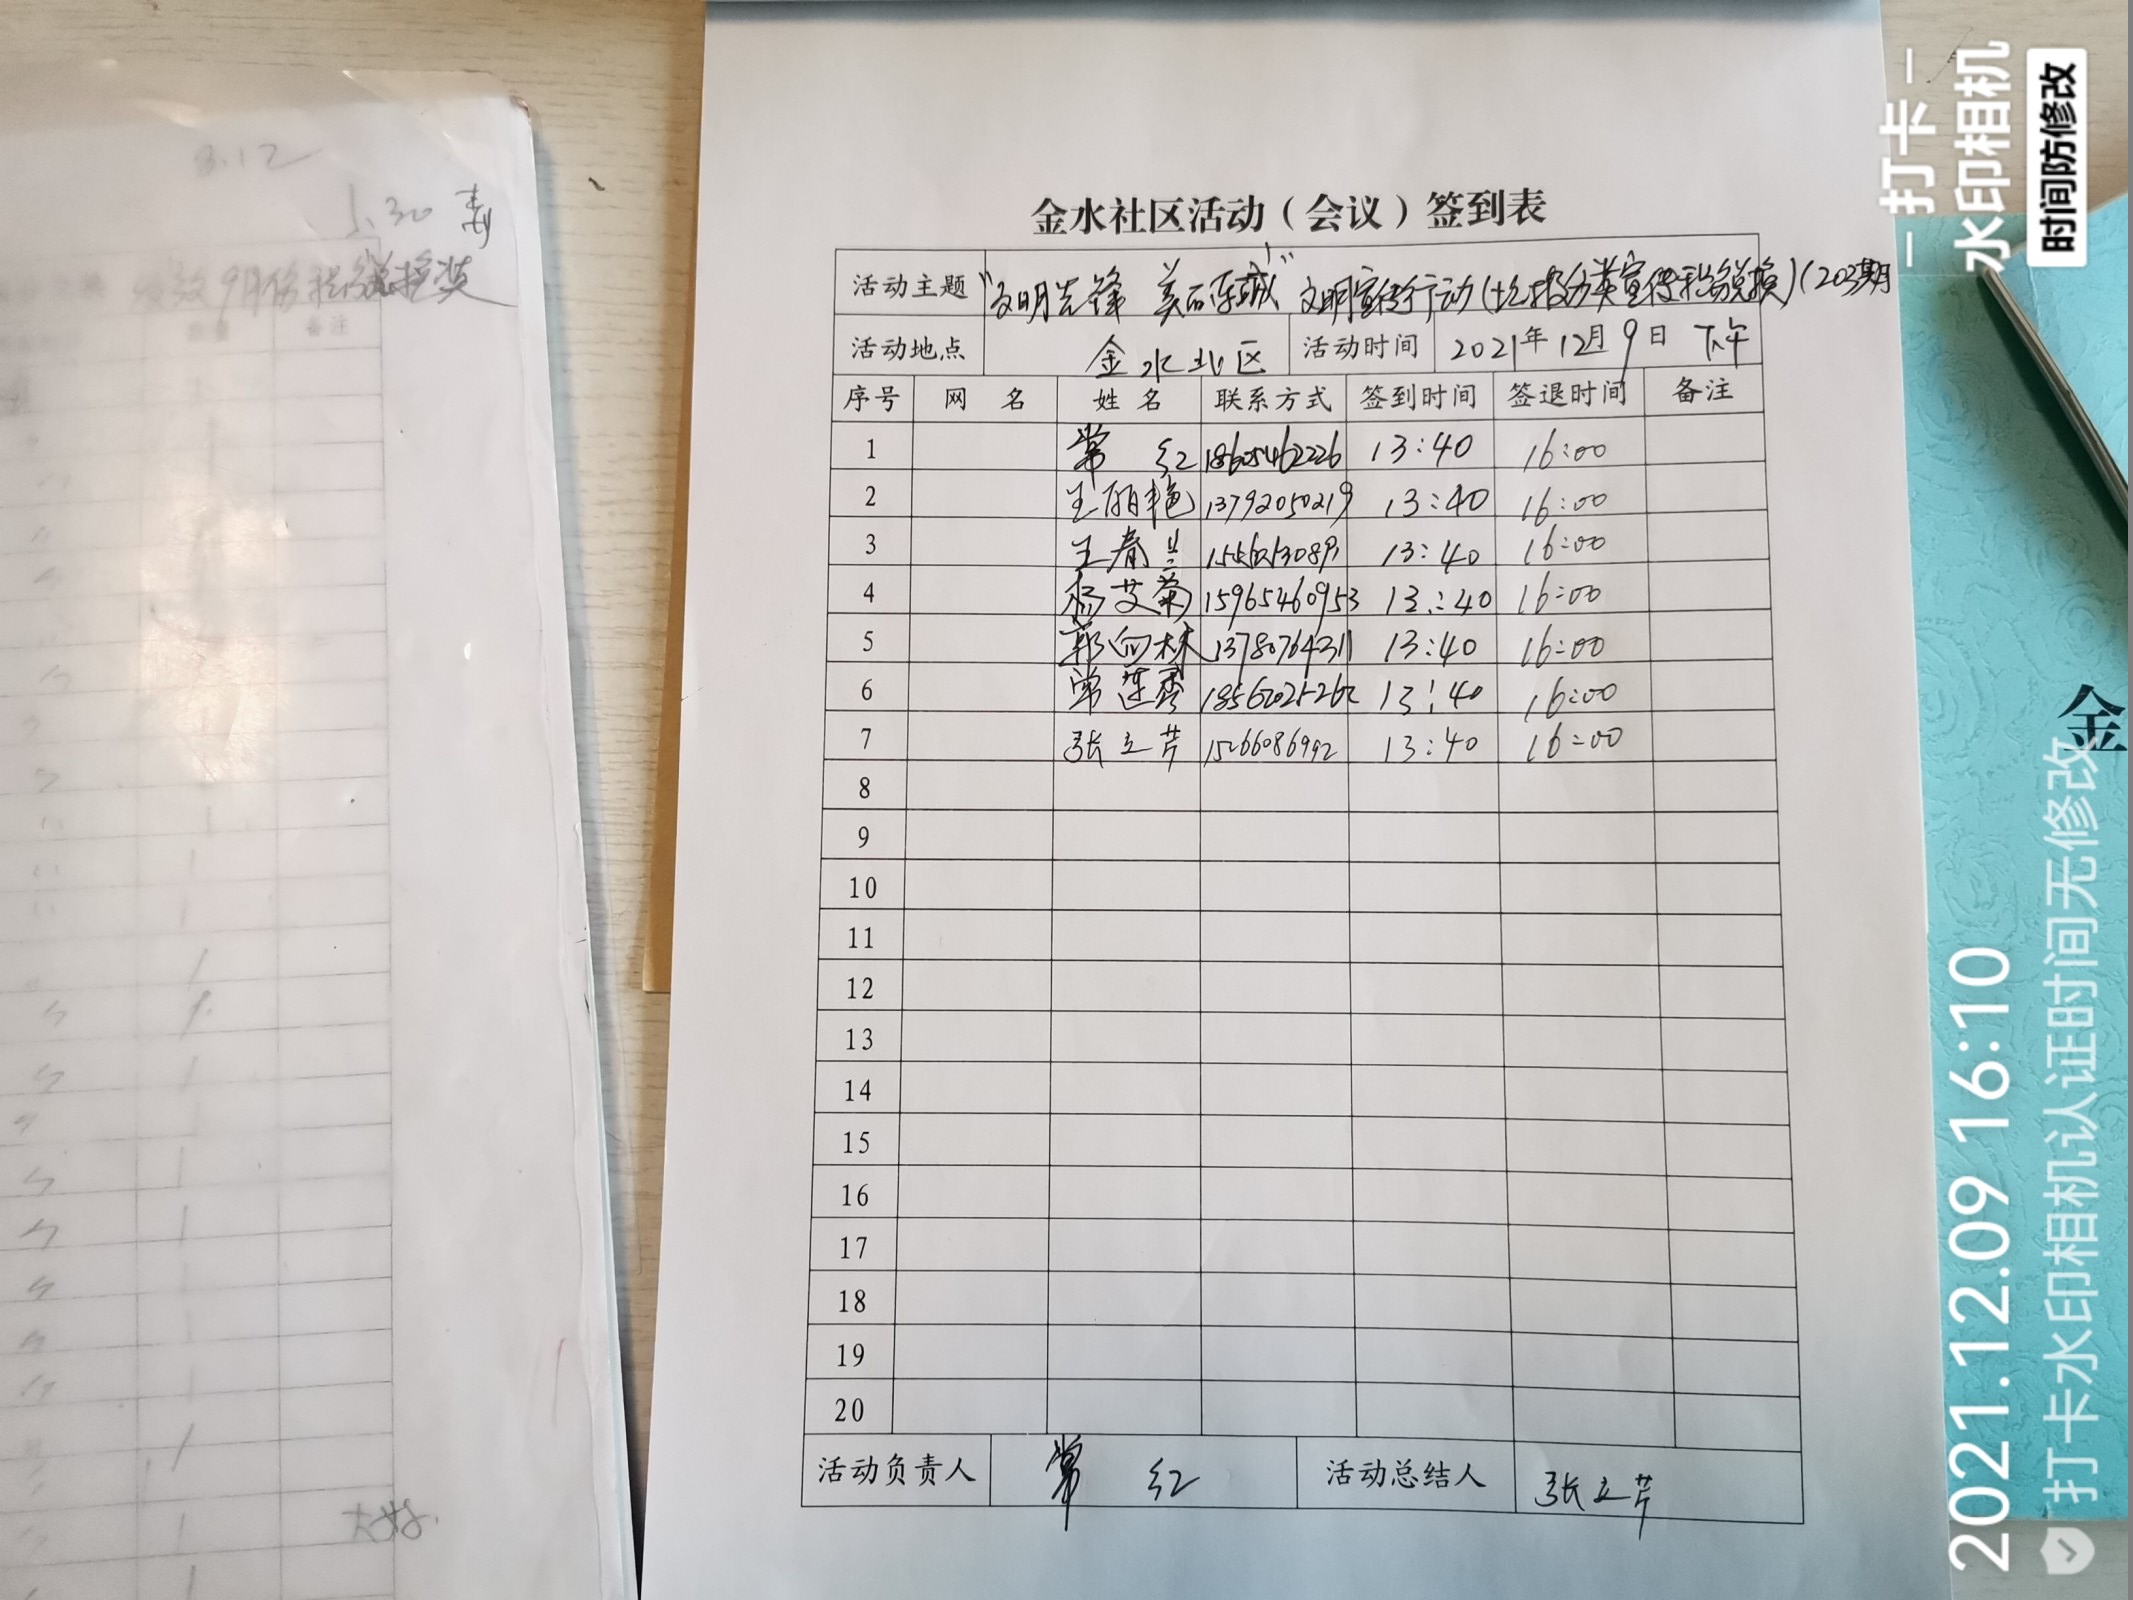 金水社区活动（会议）签到表
活动主题 "文明先锋 美丽东城" 文明宣传行动(垃圾分类宣传积分兑换)(203期
活动地点 金水北区 活动时间 2021年12月9日 下午
序号 网 名 姓 名 联系方式 签到时间 签退时间 备注
1 常 红 18605462226 13:40 16:00
2 王丽艳 13792050219 13:40 16:00
3 王春兰 13:40 16:00
4 杨艾菊 15965460953 13:40 16:00
5 郭向林 13780764311 13:40 16:00
6 常莲秀 13:40 16:00
7 张立芹 15266086992 13:40 16:00
8
9
10
11
12
13
14
15
16
17
18
19
20
活动负责人 常 红 活动总结人 张立芹
3.12
5.30
9月份积分兑换奖
备注
金
打卡
水印相机
时间防修改
2021.12.09 16:10
打卡水印相机认证时间无修改